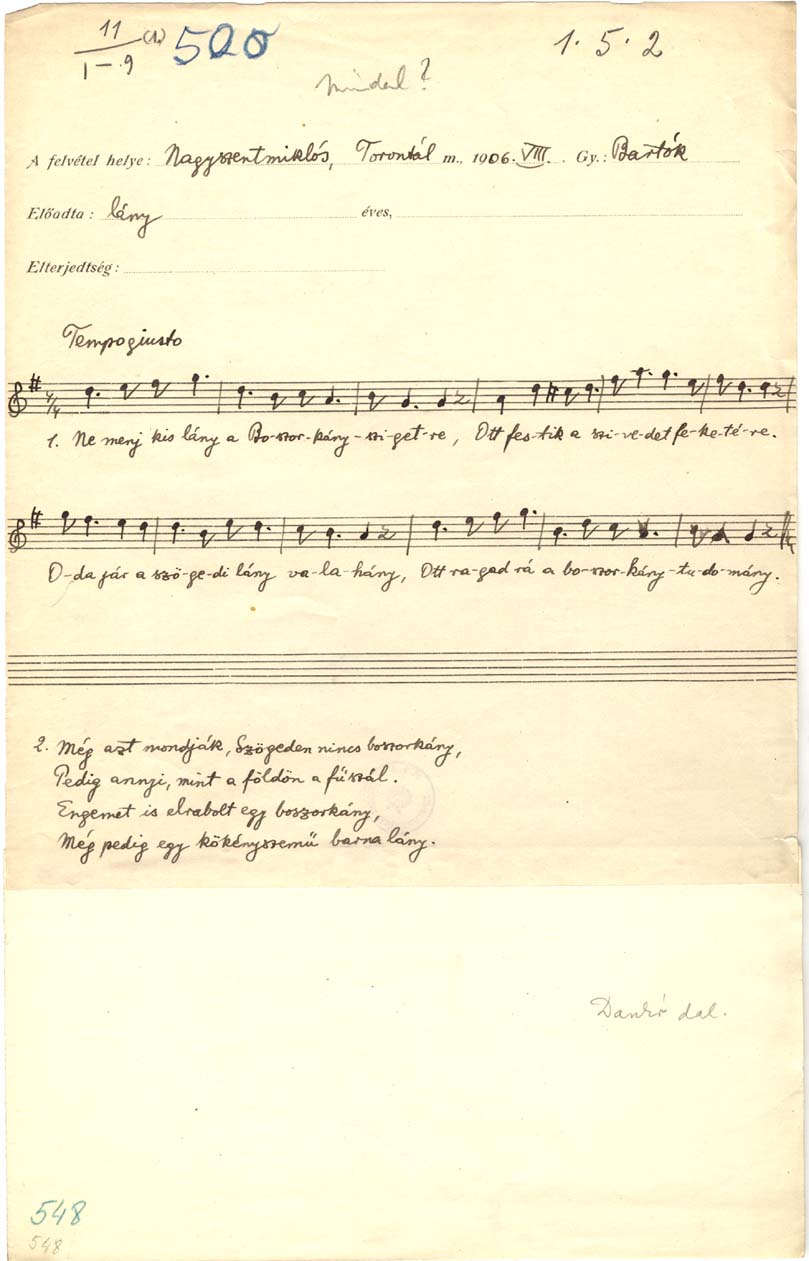 11 (1) 500 1. 5. 2
I–.9
műdal?
A felvétel helye: Nagyszentmiklós, Torontál m., 1906. VIII. Gy.: Bartók
Előadta: lány éves,
Elterjedtség:
Tempo giusto
1. Ne menj kis lány a Bo-szor-kány-szi-get-re, Ott fes-tik a szi-ve-det fe-ke-té-re.
O-da jár a szö-ge-di lány va-la-hány, Ott ra-gad rá a bo-szor-kány-tu-do-mány.
2. Még azt mondják, Szögeden nincs boszorkány,
Pedig annyi, mint a földön a fűszál.
Engemet is elrabolt egy boszorkány,
Még pedig egy kökényszemű barna lány.
Dankó dal.
548
548